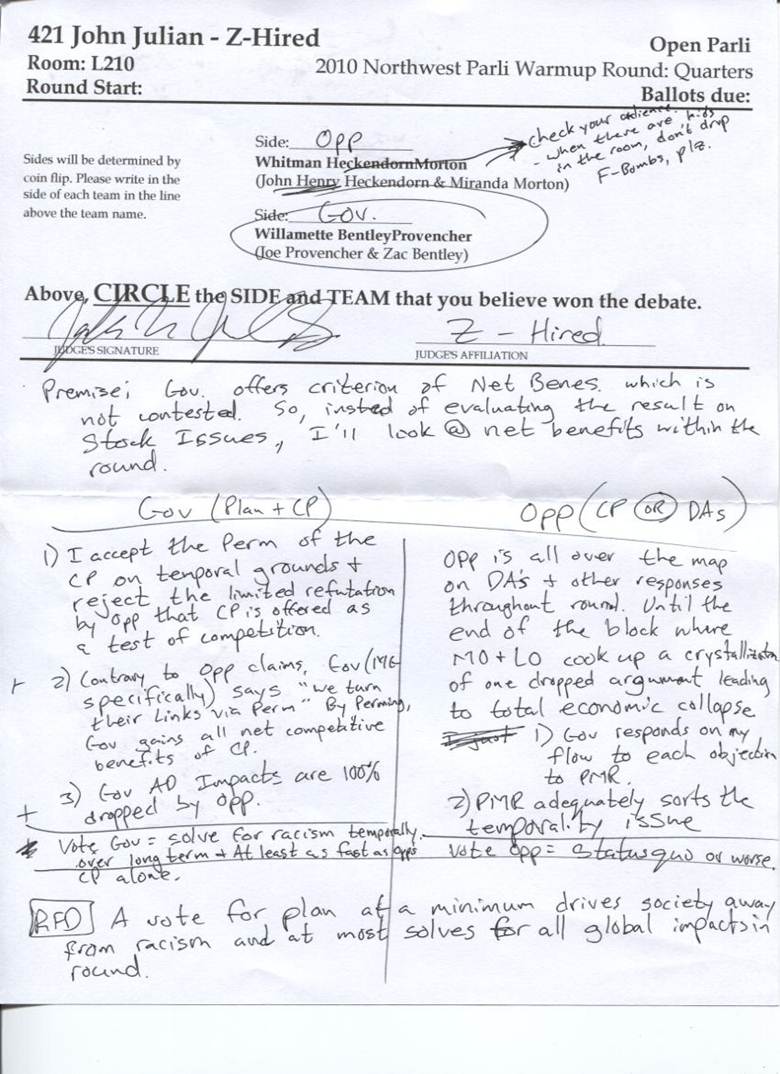 421 John Julian - Z-Hired
Open Parli
Room: L210
2010 Northwest Parli Warmup Round: Quarters
Round Start:
Ballots due:
check your audience.
- when there are kids
in the room, don't drop
F-Bombs, plz.
Side: Opp
Whitman HeckendornMorton
(John Henry Heckendorn & Miranda Morton)
Sides will be determined by
coin flip. Please write in the
side of each team in the line
above the team name.
Side: Gov.
Willamette BentleyProvencher
(Joe Provencher & Zac Bentley)
Above, CIRCLE the SIDE and TEAM that you believe won the debate.
Z - Hired
JUDGE'S SIGNATURE
JUDGE'S AFFILIATION
Premise; Gov. offers criterion of Net Benes. which is
not contested. So, insted of evaluating the result on
Stock Issues, I'll look @ net benefits within the
round.
Gov (Plan + CP)
1) I accept the Perm of the
CP on temporal grounds +
reject the limited refutation
by Opp that CP is offered as
a test of competition.
+ 2) Contrary to Opp claims, Gov (MG
specifically) says "we turn
their Links via Perm" By Perming,
Gov gains all net competitive
benefits of CP.
+ 3) Gov AD Impacts are 100%
dropped by Opp.
* Vote Gov = solve for racism temporally
over long term + At least as fast as Opps
CP alone.
Opp (CP OR DAs)
Opp is all over the map
on DA's + other responses
throughout round. Until the
end of the block where
MO + LO cook up a crystallization
of one dropped argument leading
to total economic collapse
I just 1) Gov responds on my
flow to each objection
to PMR.
2) PMR adequately sorts the
temporality issue
Vote Opp = Status quo or worse.
RFD A vote for plan at a minimum drives society away
from racism and at most solves for all global impacts in
round.